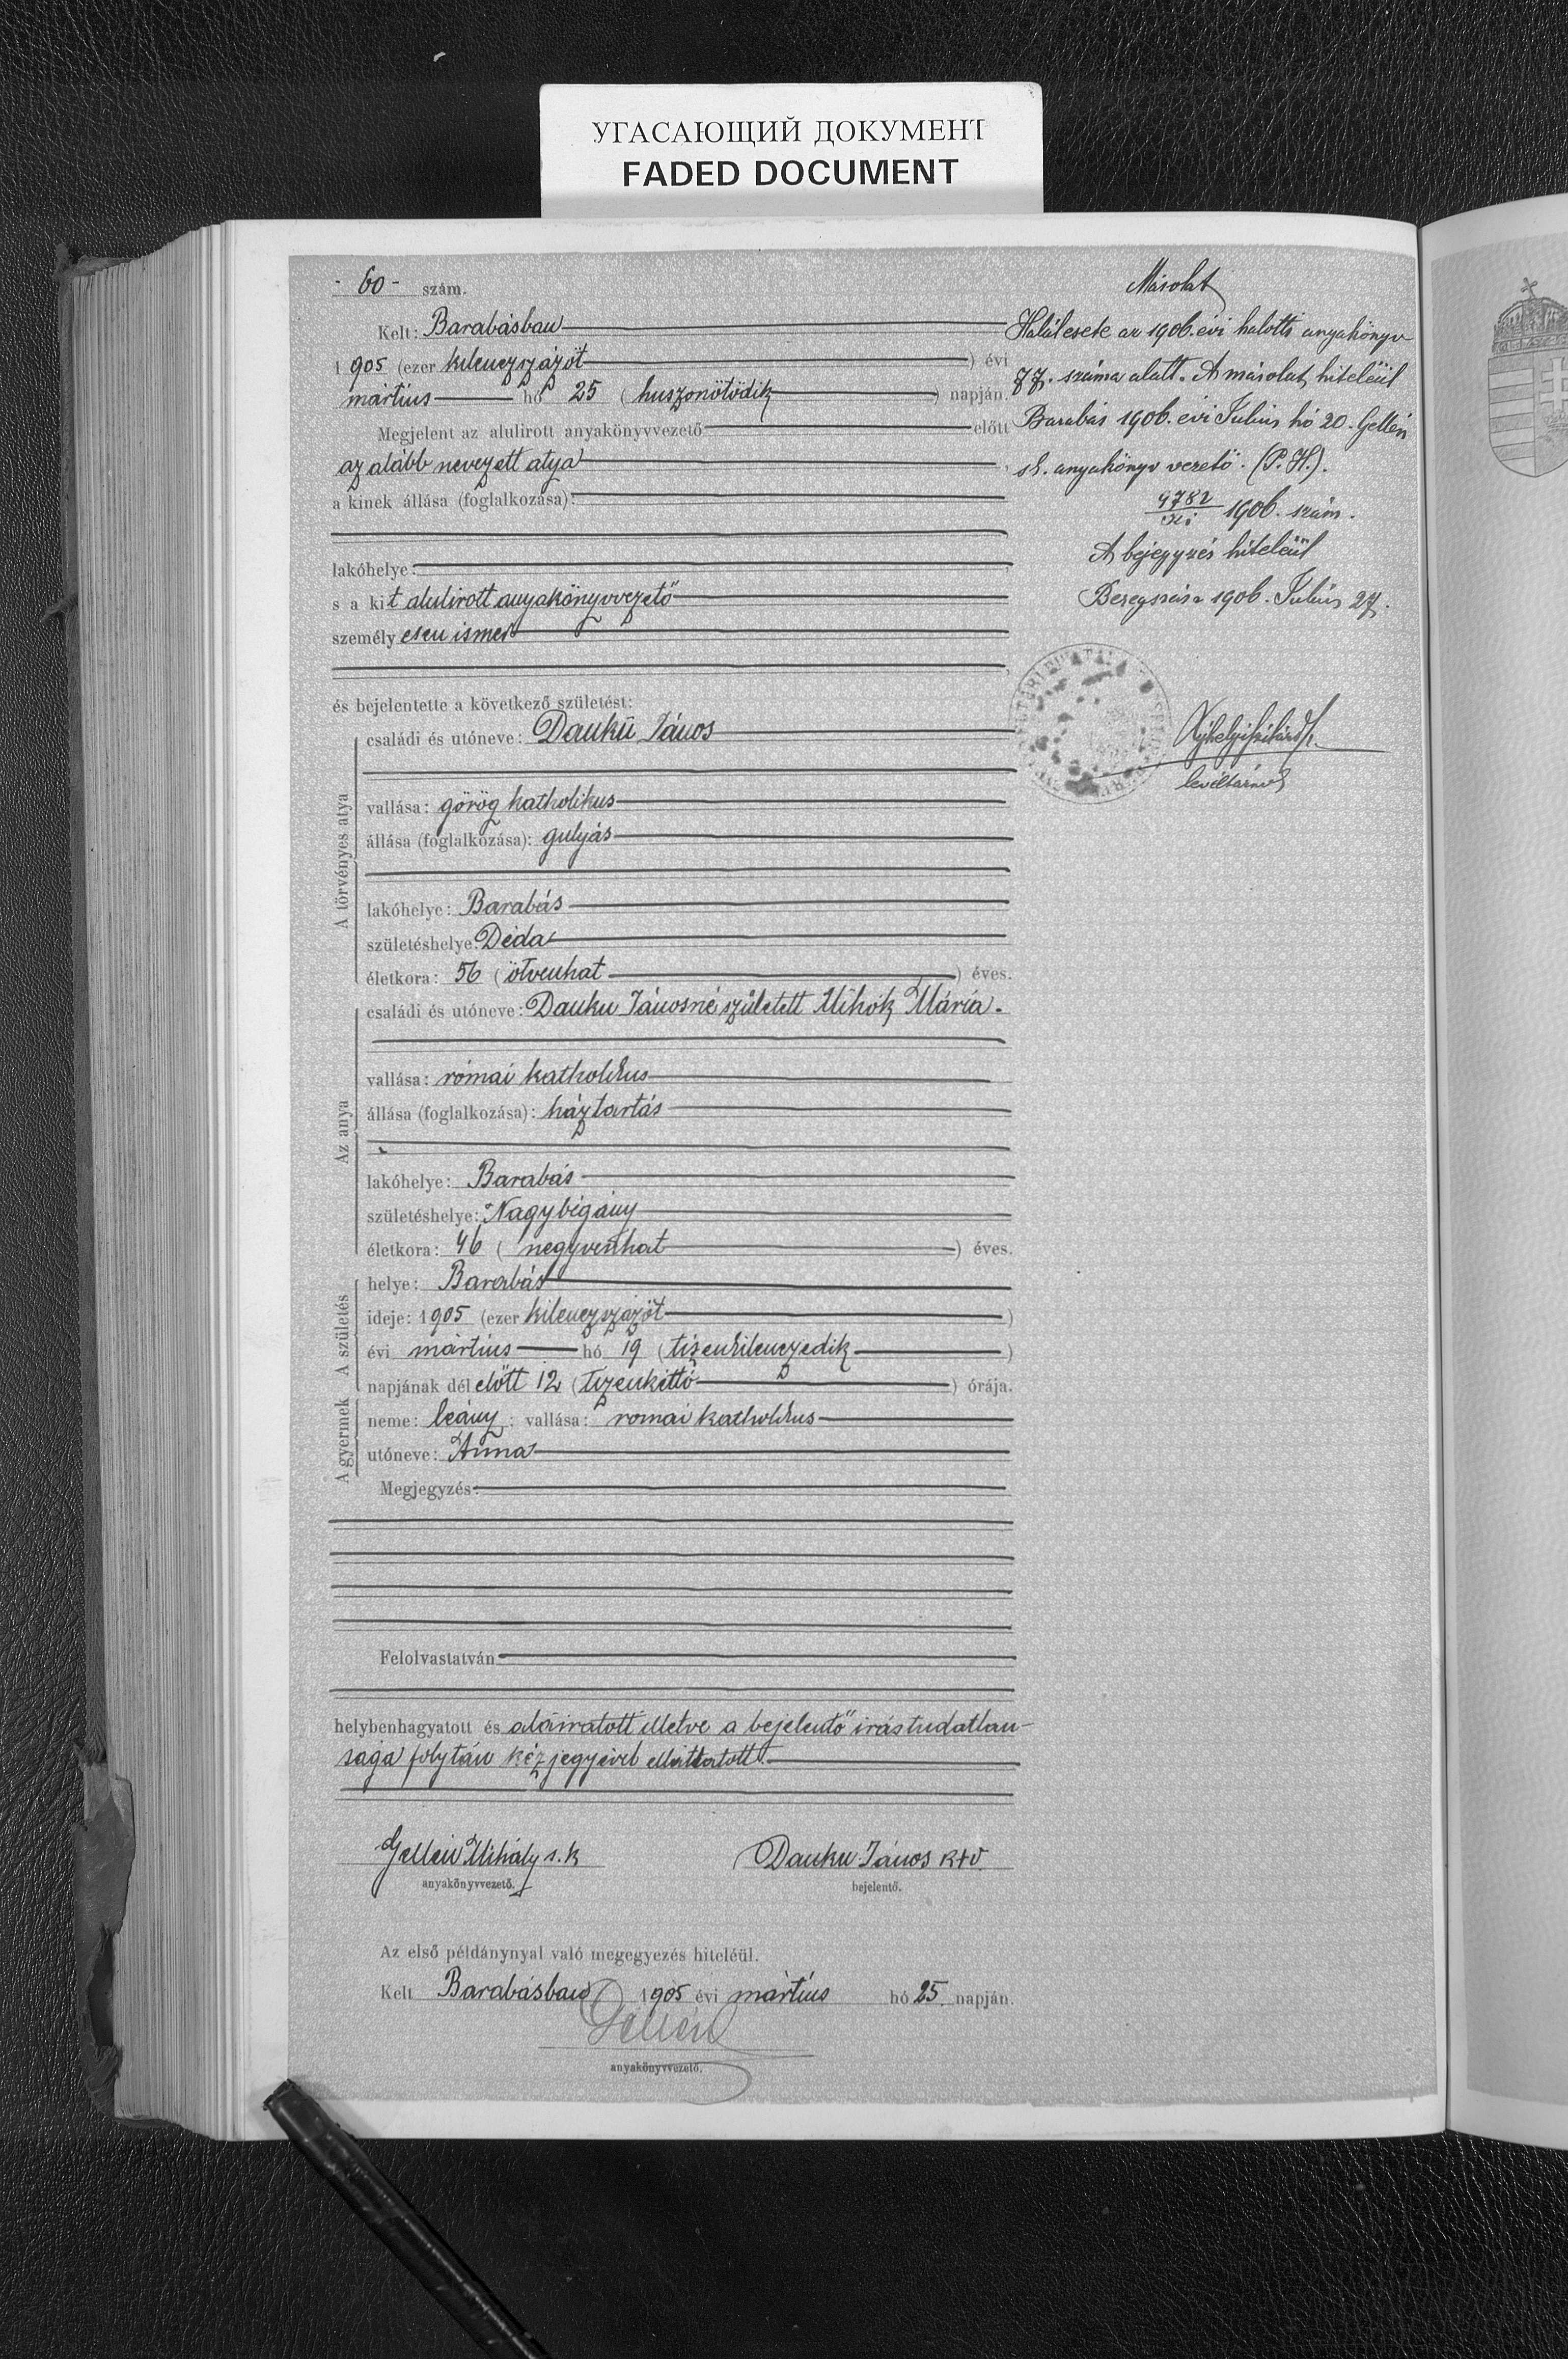 УГАСАЮЩИЙ ДОКУМЕНТ
FADED DOCUMENT
- 60 - szám.
Kelt: Barabásban
1905 (ezer kilenczszázöt) évi
mártius hó 25 (huszonötödik) napján.
Megjelent az alulirott anyakönyvvezető előtt
az alább nevezett atya
a kinek állása (foglalkozása):
lakóhelye:
s a kit alulirott anyakönyvvezető
személyesen ismer
és bejelentette a következő születést:
A törvényes atya
családi és utóneve: Danku János
vallása: görög katholikus
állása (foglalkozása): gulyás
lakóhelye: Barabás
születéshelye: Déda
életkora: 56 (ötvenhat) éves.
Az anya
családi és utóneve: Danku Jánosné született Mihók Mária.
vallása: római katholikus
állása (foglalkozása): háztartás
lakóhelye: Barabás
születéshelye: Nagybégány
életkora: 46 (negyvenhat) éves.
A születés
helye: Barabás
ideje: 1905 (ezer kilenczszázöt)
évi mártius hó 19 (tizenkilenczedik)
napjának dél előtt 12 (tizenkettő) órája.
A gyermek
neme: leány; vallása: romai katholikus
utóneve: Anna
Megjegyzés:
Felolvastatván
helybenhagyatott és aláiratott illetve a bejelentő irástudatlan-
sága folytán kézjegyével elláttatott.
Gellén Mihály s.k
anyakönyvvezető.
Danku János k+v.
bejelentő.
Az első példánynyal való megegyezés hiteléül.
Kelt Barabásban 1905 évi mártius hó 25. napján.
Gellén
anyakönyvvezető.
Másolat
Halálesete az 1906. évi halotti anyakönyv
77. száma alatt. A másolat hiteléül
Barabás 1906. évi Július hó 20. Gellén
sk. anyakönyv vezető. (P.H.).
4782 1906. szám.
A bejegyzés hiteléül
Beregszász 1906. Július 27.
levéltárnok